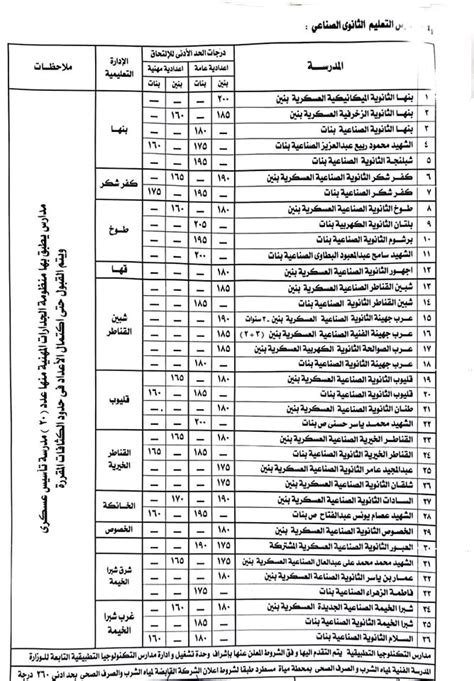 مدارس التعليم الثانوى الصناعي :
م | المدرسة | درجات الحد الأدنى للإلتحاق | الإدارة التعليمية | ملاحظات
اعدادية عامة | اعدادية مهنية
بنين | بنات | بنين | بنات
١ | بنها الثانوية الميكانيكية العسكرية بنين | ٢٠٠ | — | — | — | بنها
٢ | بنها الثانوية الزخرفية العسكرية بنين | ١٨٥ | — | ١٦٠ | —
٣ | بنها الثانوية الصناعية بنات | — | ١٨٠ | — | —
٤ | الشهيد محمود ربيع عبدالعزيز الصناعية بنات | — | ١٧٥ | — | ١٦٠
٥ | شبلنجة الثانوية الصناعية بنات | — | ١٩٥ | — | —
٦ | كفر شكر الثانوية الصناعية العسكرية بنين | ١٩٠ | — | ١٦٥ | — | كفر شكر
٧ | كفر شكر الثانوية الصناعية بنات | — | ١٩٥ | — | ١٧٥
٨ | طوخ الثانوية الصناعية العسكرية بنين | ١٨٠ | — | ١٦٠ | — | طوخ
٩ | بلتان الثانوية الكهربية بنات | — | ٢٠٥ | — | —
١٠ | برشوم الثانوية الصناعية بنات | — | ١٩٥ | — | —
١١ | الشهيد سامح عبدالمعبود البطاوى الصناعية بنات | — | ٢٠٠ | — | —
١٢ | اجهور الثانوية الصناعية العسكرية بنين | ١٨٠ | — | — | — | قها
١٣ | شبين القناطر الثانوية الصناعية العسكرية بنين | ١٨٥ | — | — | — | شبين القناطر
١٤ | شبين القناطر الثانوية الصناعية بنات | — | ١٨٥ | — | —
١٥ | عرب جهينة الثانوية الصناعية بنين -٣ سنوات | ١٩٠ | — | — | —
١٦ | عرب جهينة الفنية الصناعية العسكرية بنين (٢+٣) | ١٨٥ | — | — | —
١٧ | عرب الصوالحة الثانوية الكهربية العسكرية بنين | ١٩٠ | — | — | —
١٨ | عرب جهينة الثانوية الصناعية بنات | — | ١٨٠ | — | —
١٩ | قليوب الثانوية الصناعية العسكرية بنين | ١٨٠ | — | ١٦٥ | — | قليوب
٢٠ | قليوب الثانوية الصناعية بنات | — | ١٨٥ | — | ١٦٠
٢١ | طنان الثانوية الصناعية العسكرية بنين | ١٨٠ | — | — | —
٢٢ | الشهيد محمد ياسر حسنى ص بنات | — | ٢٠٠ | — | —
٢٣ | القناطر الخيرية الصناعية العسكرية بنين | ١٨٠ | — | ١٦٥ | — | القناطر الخيرية
٢٤ | القناطر الخيرية الثانوية الصناعية بنات | — | ١٨٥ | — | ١٦٥
٢٥ | عبدالمجيد عامر الثانوية الصناعية العسكرية بنين | ١٧٥ | — | — | —
٢٦ | شلقان الثانوية الصناعية العسكرية بنين | ١٧٥ | — | — | —
٢٧ | السادات الثانوية الصناعية العسكرية بنين | ١٩٠ | — | ١٧٠ | — | الخانكة
٢٨ | الشهيد عصام يونس عبدالفتاح ص بنات | — | ١٩٥ | — | ١٦٠
٢٩ | الخصوص الثانوية الصناعية العسكرية بنين | ١٨٠ | — | — | — | الخصوص
٣٠ | العبور الثانوية الصناعية العسكرية المشتركة | ١٧٥ | ١٩٠ | — | —
٣١ | الشهيد محمد محمد على عبدالعال الصناعية العسكرية بنين | ١٧٥ | — | ١٦٥ | — | شرق شبرا الخيمة
٣٢ | عمار بن ياسر الثانوية الصناعية العسكرية بنين | ١٧٥ | — | — | —
٣٣ | فاطمة الزهراء الصناعية بنات | — | ١٧٥ | — | —
٣٤ | شبرا الخيمة الصناعية الجديدة العسكرية بنين | ١٨٠ | — | ١٦٠ | — | غرب شبرا الخيمة
٣٦ | السلام الثانوية الصناعية بنات | — | ١٨٥ | — | ١٦٠
مدارس يطبق بها منظومة الجدارات المهنية منها عدد (٢٠) مدرسة تأسيس عسكرى
ويتم القبول حتى اكتمال الأعداد فى حدود الكثافات المقررة
مدارس التكنولوجيا التطبيقية يتم التقدم اليها وفق الشروط المعلن عنها بإشراف وحدة تشغيل وإدارة مدارس التكنولوجيا التطبيقية التابعة للوزارة
المدرسة الفنية لمياه الشرب والصرف الصحى بمحطة مياة مسطرد طبقا لشروط اعلان الشركة القابضة لمياه الشرب والصرف الصحى بحد ادنى ٢٦٠ درجة